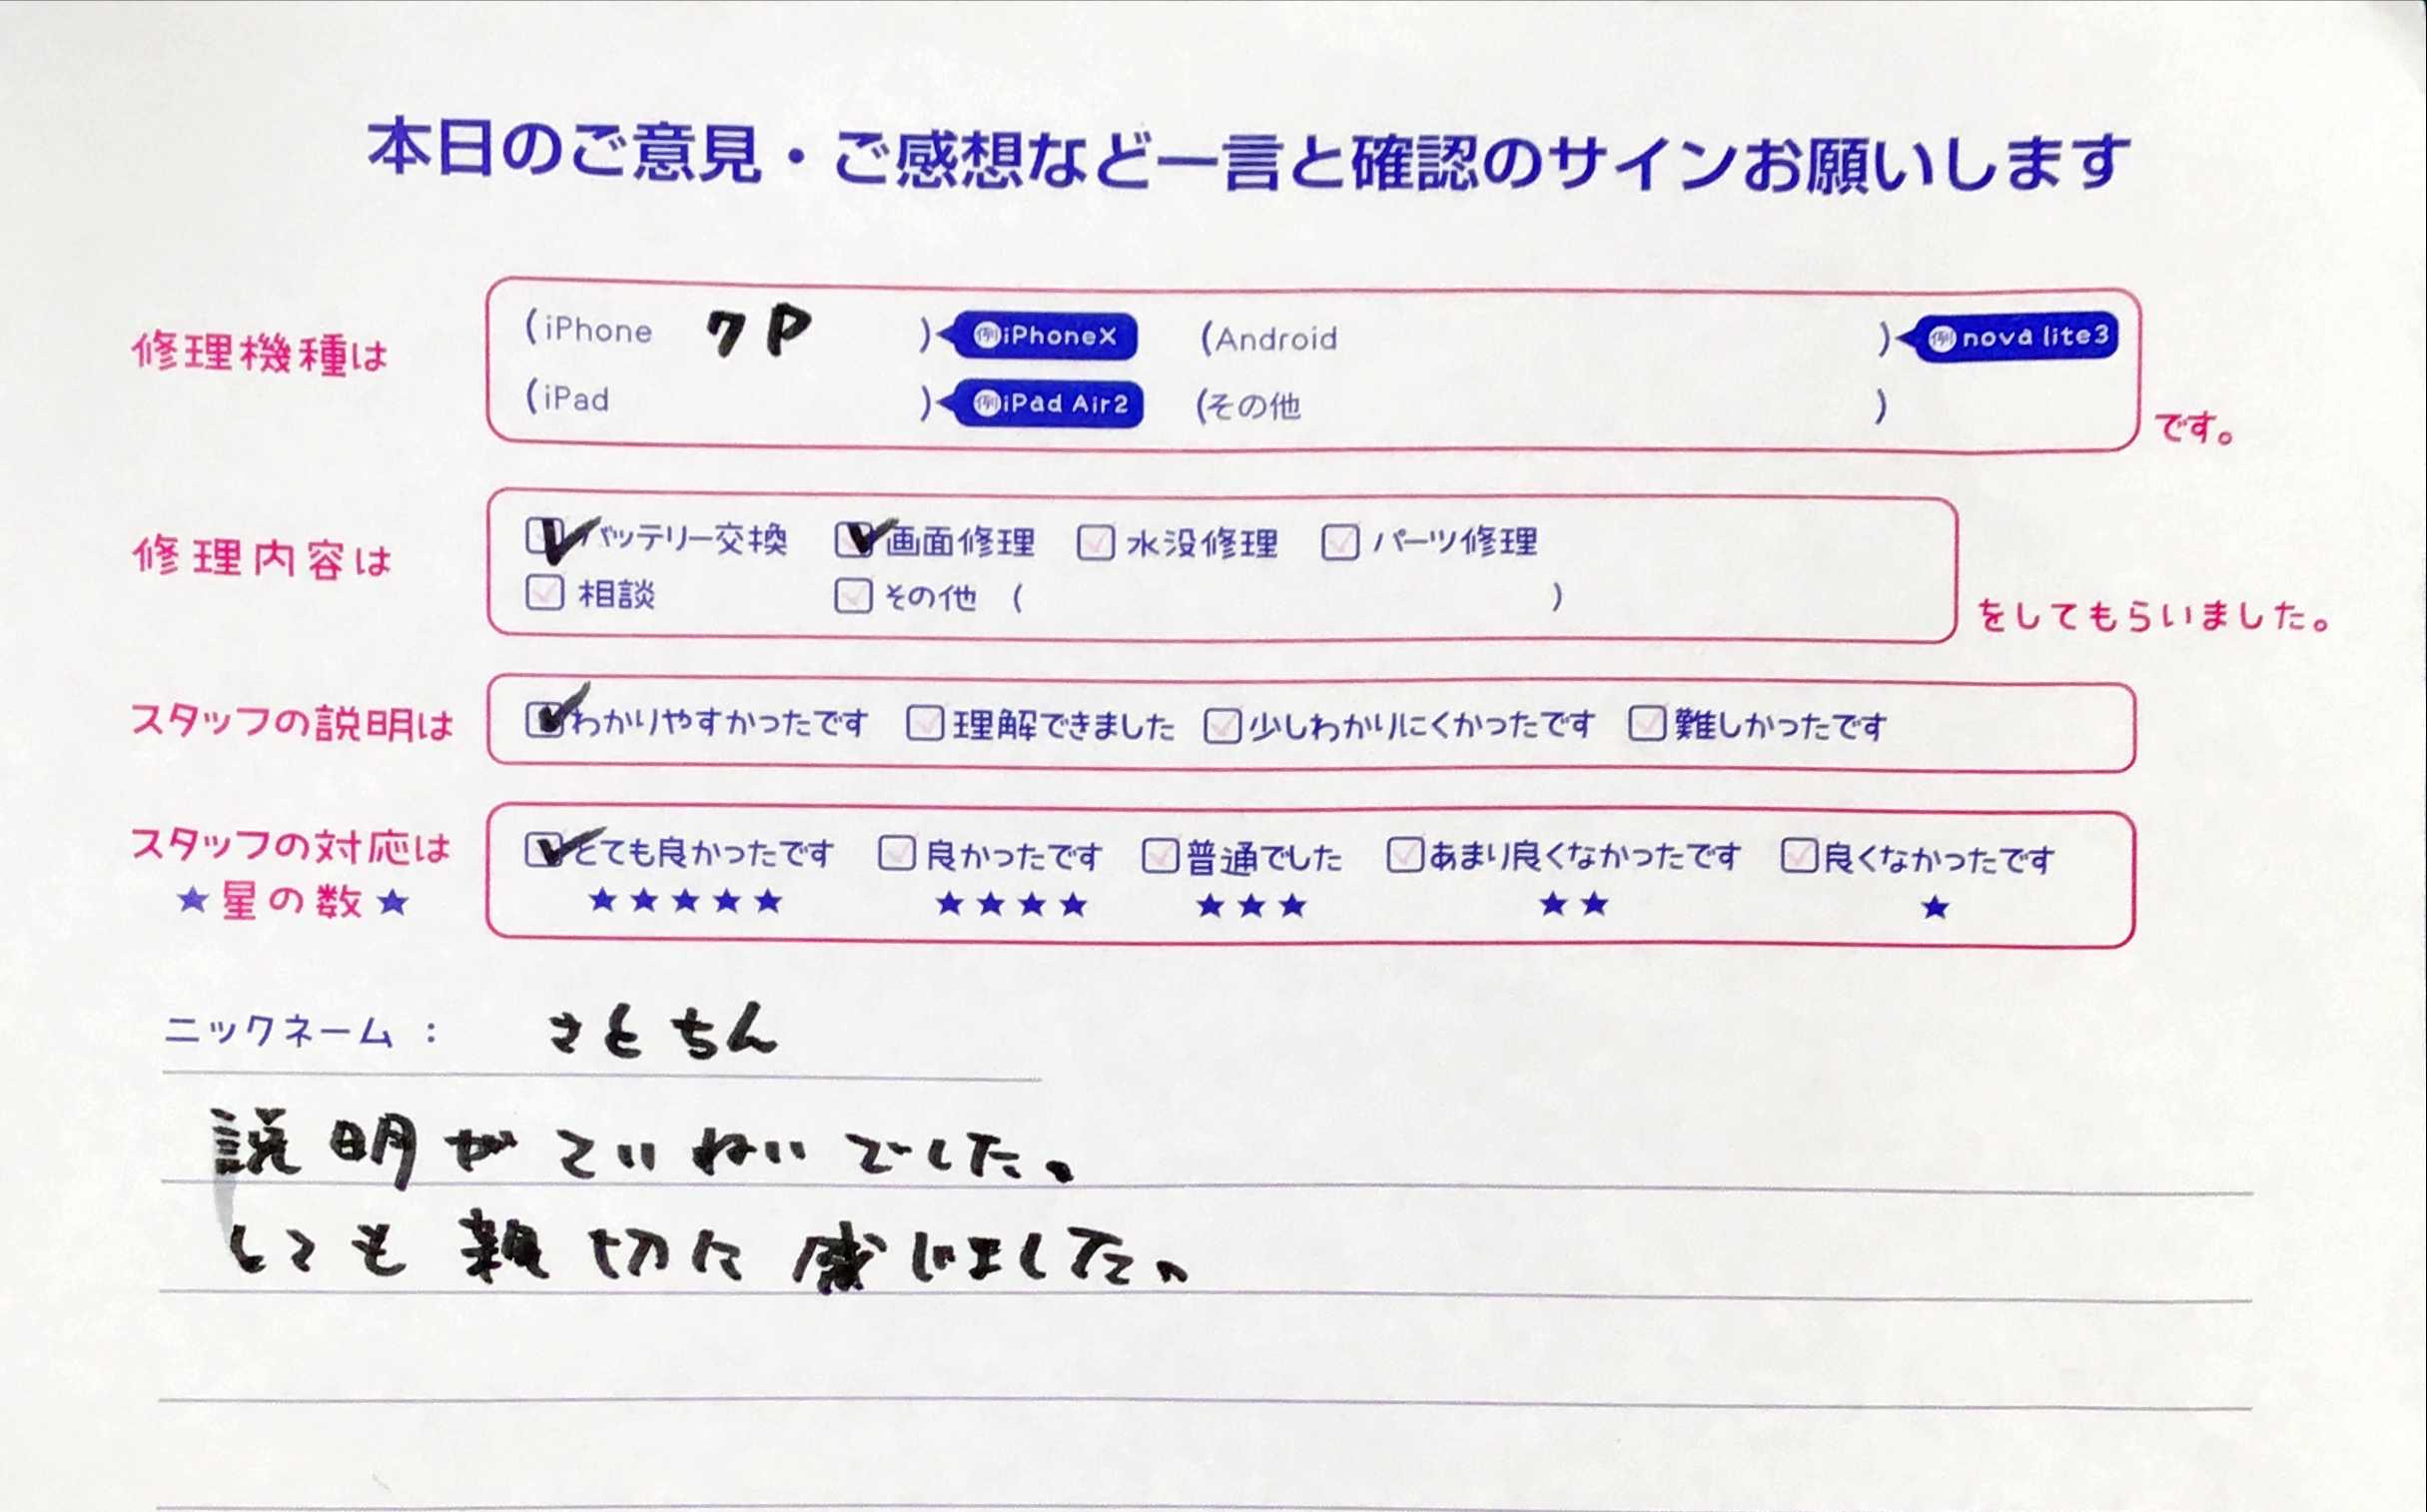 本日のご意見・ご感想など一言と確認のサインお願いします
修理機種は
(iPhone 7P ) 例iPhoneX (Android ) 例nova lite3
(iPad ) 例iPad Air2 (その他 )
です。
修理内容は
バッテリー交換 画面修理 水没修理 パーツ修理
相談 その他 ( )
をしてもらいました。
スタッフの説明は
わかりやすかったです 理解できました 少しわかりにくかったです 難しかったです
スタッフの対応は
★星の数★
とても良かったです 良かったです 普通でした あまり良くなかったです 良くなかったです
★★★★★ ★★★★ ★★★ ★★ ★
ニックネーム： さとちん
説明がていねいでした。
とても親切に感じました。